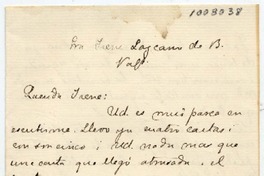 1008038
Sra Irene Lazcano de B.
Valp.
Querida Irene:
Ud. es muy parca en
escribirme. Llevo ya cuatro cartas i
con esta cinco i Ud. nada mas que
una carta que llegó atrasada. el